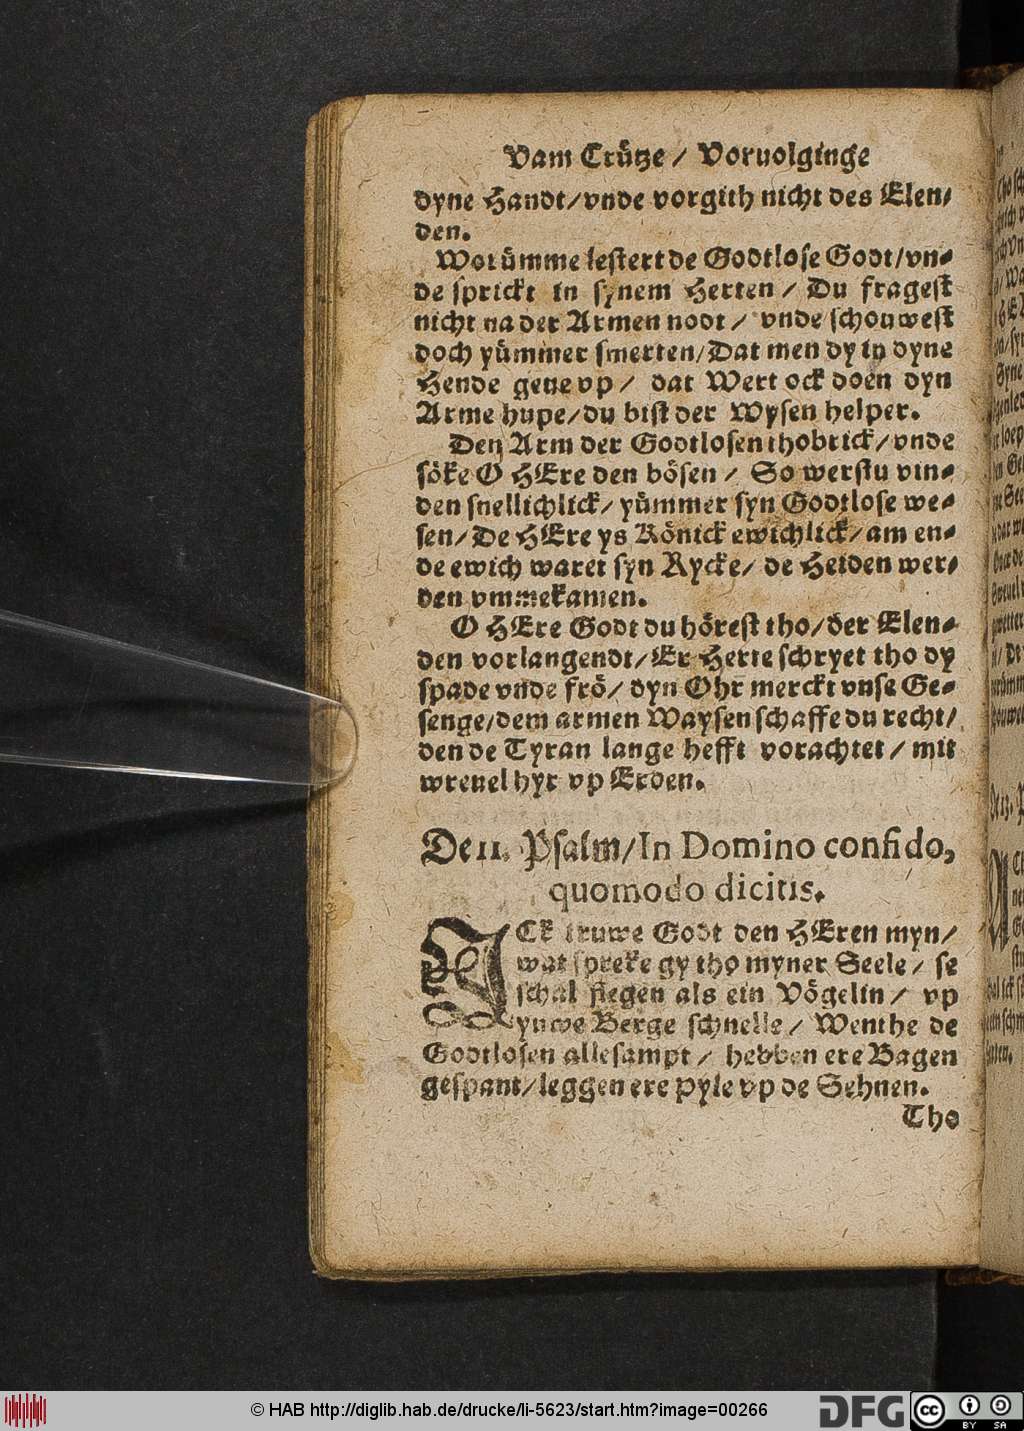 Vam Crütze / Voruolginge
dyne Handt/vnde vorgith nicht des Elen/
den.
Worümme lestert de Godtlose Godt/vn-
de sprickt in synem Herten / Du fragest
nicht na der Armen nodt / vnde schouwest
doch yümmer smerten/Dat men dy in dyne
Hende geue vp / dat Wert ock doen dyn
Arme hupe/du bist der Wysen helper.
Den Arm der Godtlosen thobrick/vnde
söke O HEre den bösen / So werstu vin-
den snellichlick/yümmer syn Godtlose we-
sen/De HEre ys Könick ewichlick/am en-
de ewich waret syn Rycke/de Heiden wer/
den vmmekamen.
O HEre Godt du hörest tho/der Elen-
den vorlangendt/Er Herte schryet tho dy
spade vnde frö/dyn Ohr merckt vnse Ge-
senge/dem armen Waysen schaffe du recht/
den de Tyran lange hefft vorachtet/mit
wreuel hyr vp Erden.
De 11. Psalm/In Domino confido,
quomodo dicitis.
ICk truwe Godt den HEren myn/
wat spreke gy tho myner Seele/se
schal flegen als ein Vögelin/ vp
yuwe Berge schnelle/Wenthe de
Godtlosen allesampt/ hebben ere Bagen
gespant/leggen ere pyle vp de Sehnen.
Tho
© HAB http://diglib.hab.de/drucke/li-5623/start.htm?image=00266
DFG
cc
BY SA